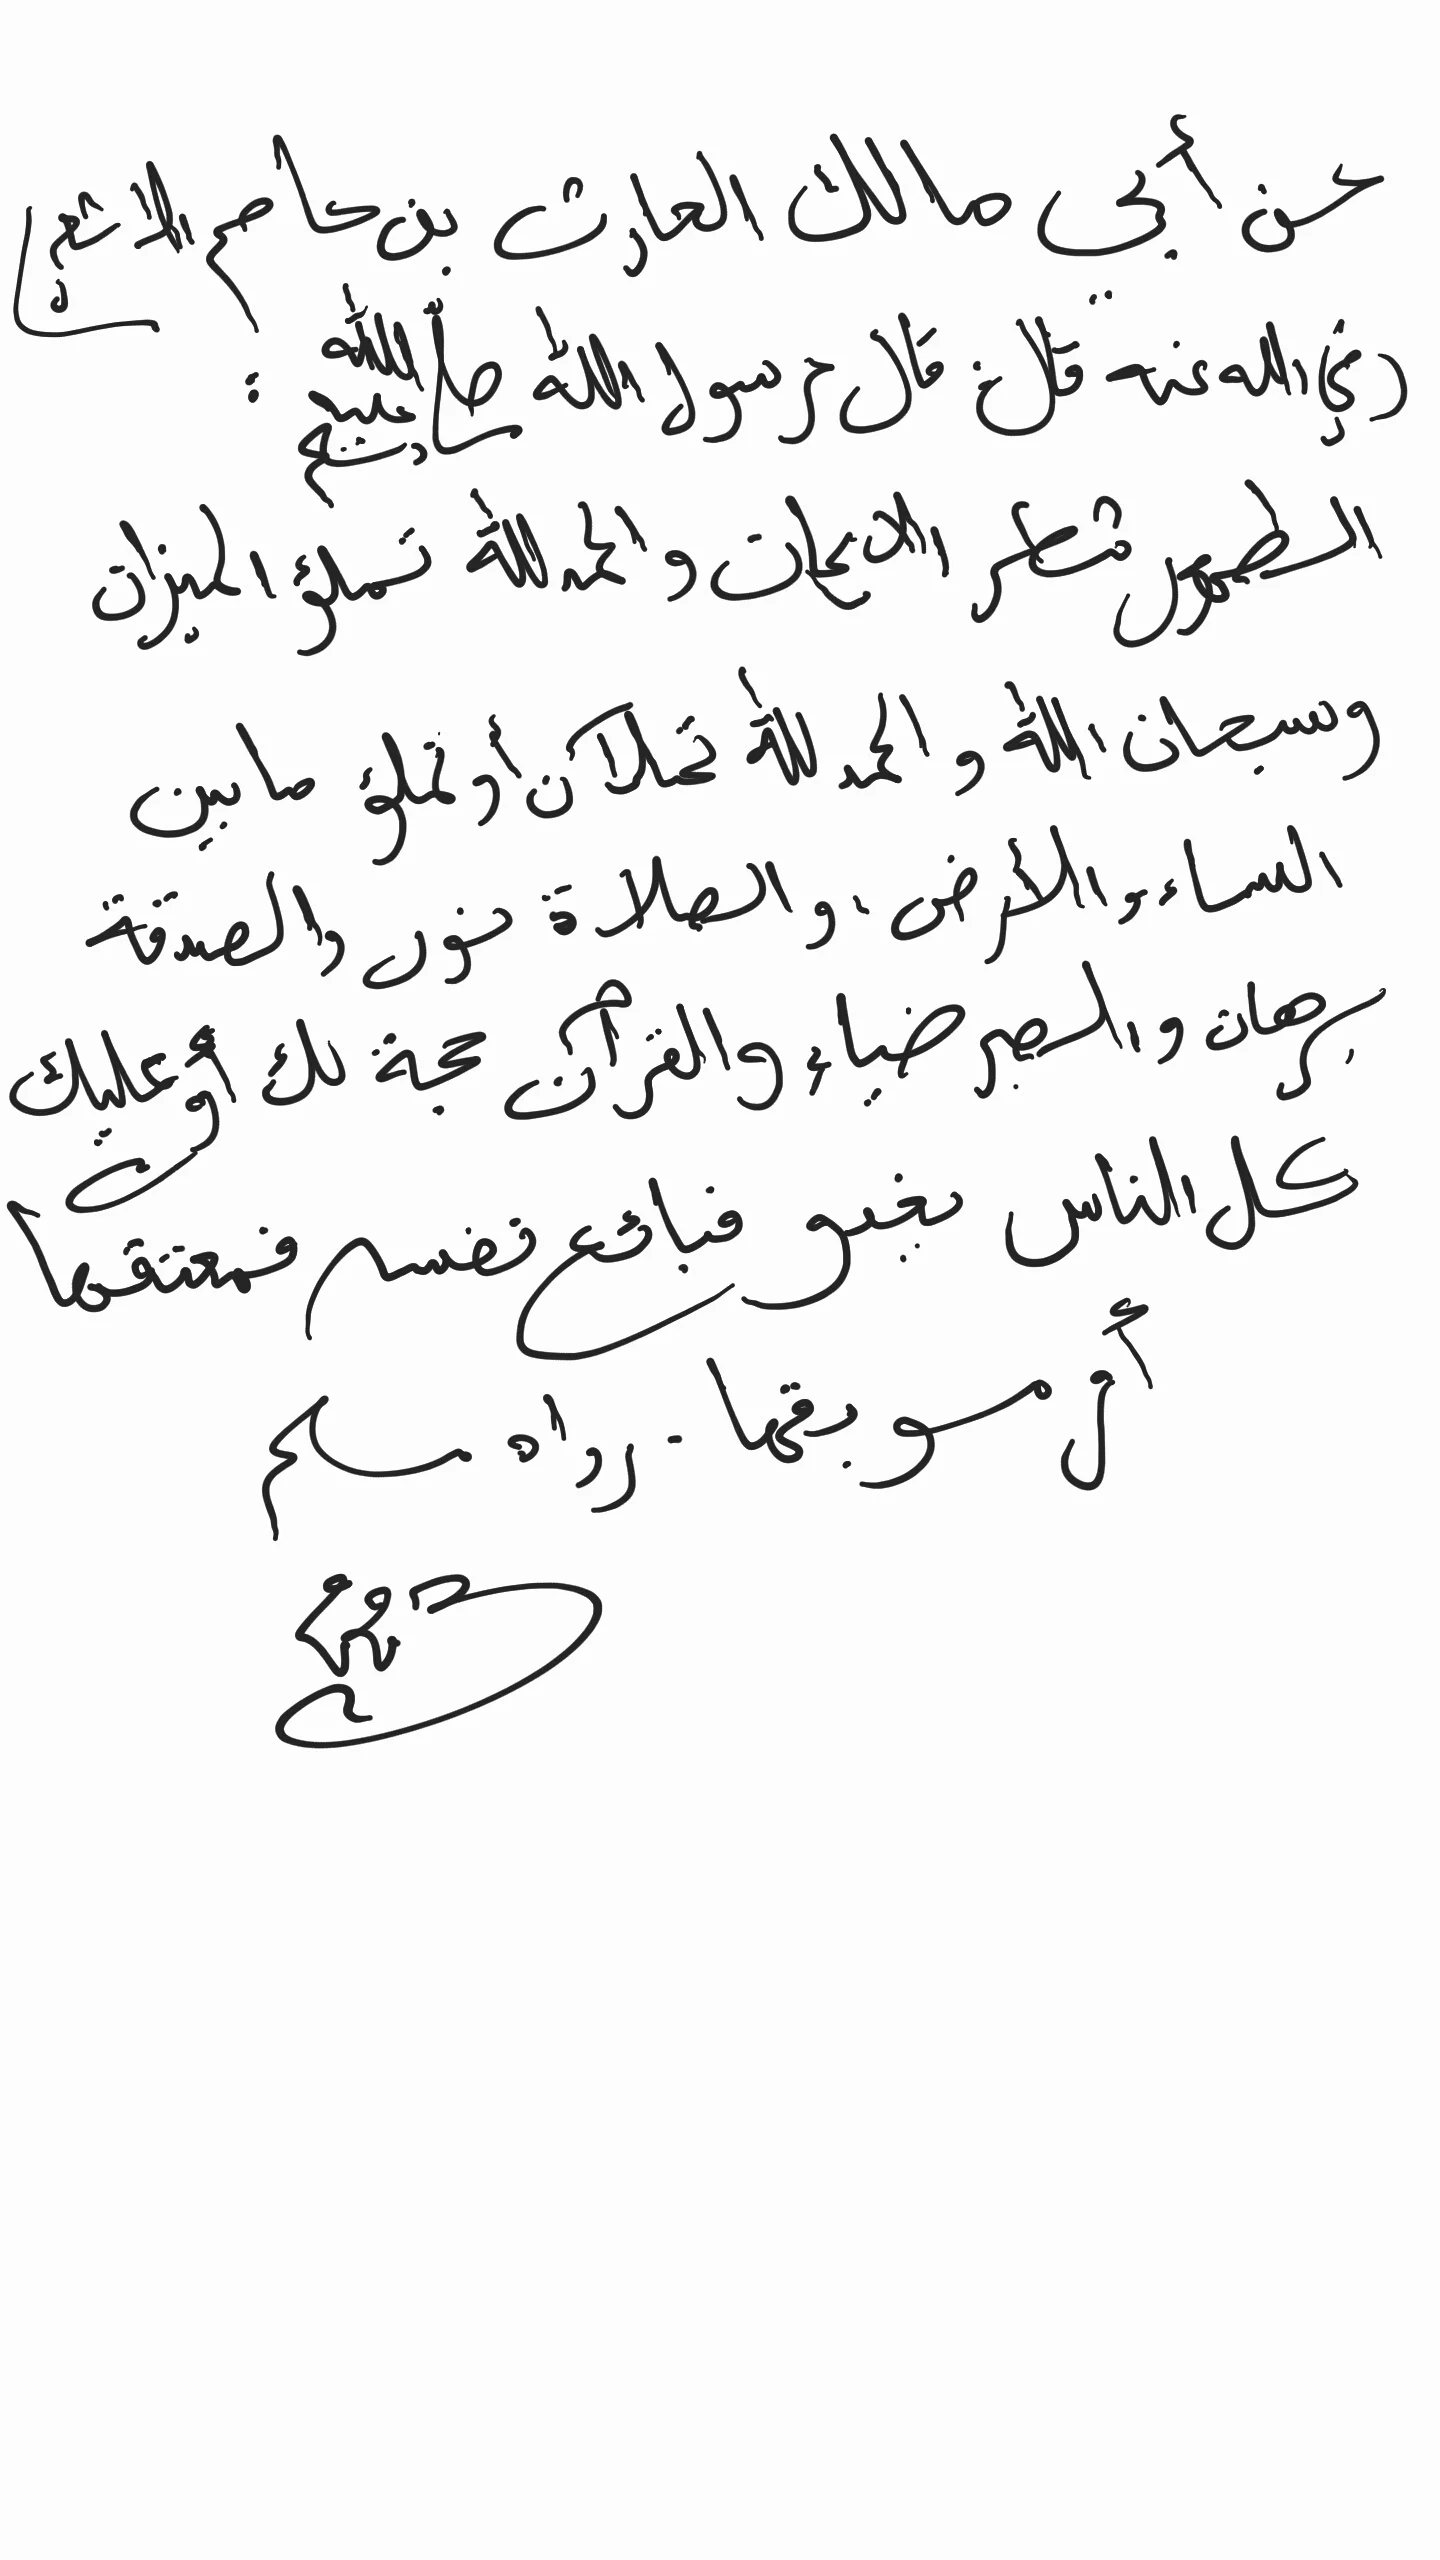 عن أبي مالك الحارث بن عاصم الاشعري
رضي الله عنه قال: قال رسول الله صلى الله عليه وسلم :
الطهور شطر الايمان و الحمد لله تملؤ الميزان
و سبحان الله و الحمد لله تملآن أو تملؤ ما بين
السماء و الأرض، و الصلاة نور والصدقة
برهان و الصبر ضياء والقرآن حجة لك أو عليك
كل الناس يغدو فبائع نفسه فمعتقها
أو موبقها - رواه مسلم